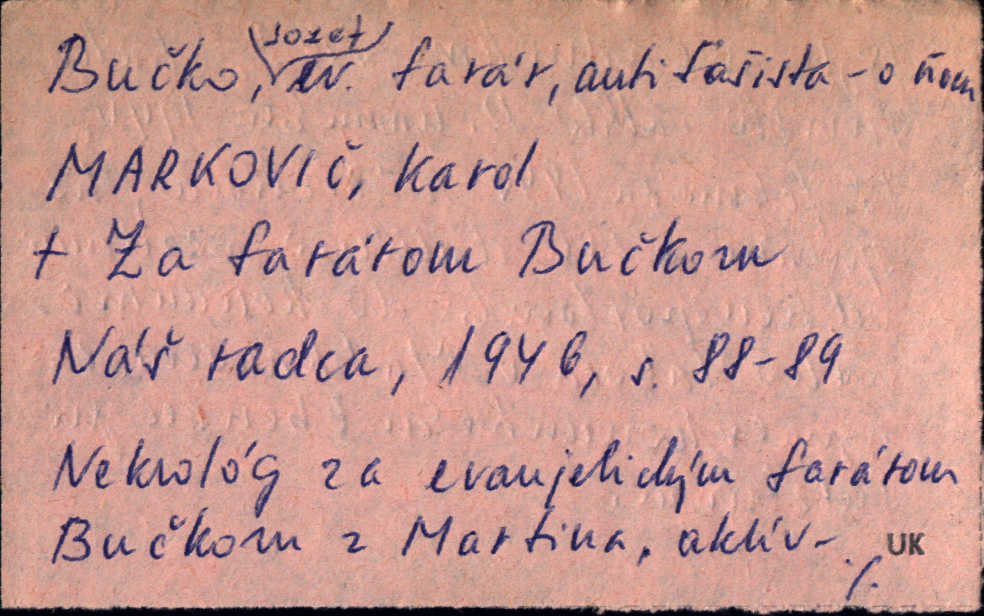 Bučko, Jozef ev. farár, antifašista - o ňom
MARKOVIČ, Karol
+ Za farárom Bučkom
Náš radca, 1946, s. 88-89
Nekrológ za evanjelickým farárom
Bučkom z Martina, aktív- ./.
UK